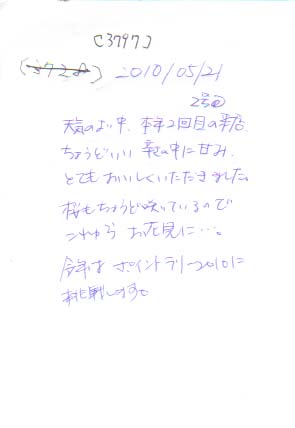 [3797]
2010/05/21
天気のよい中、本年2回目の来店、
ちょうどいい辛さの中に甘み、
とてもおいしくいただきました。
桜もちょうど咲いているので
これから お花見に…。
今年は ポイントラリー2010に
挑戦します。